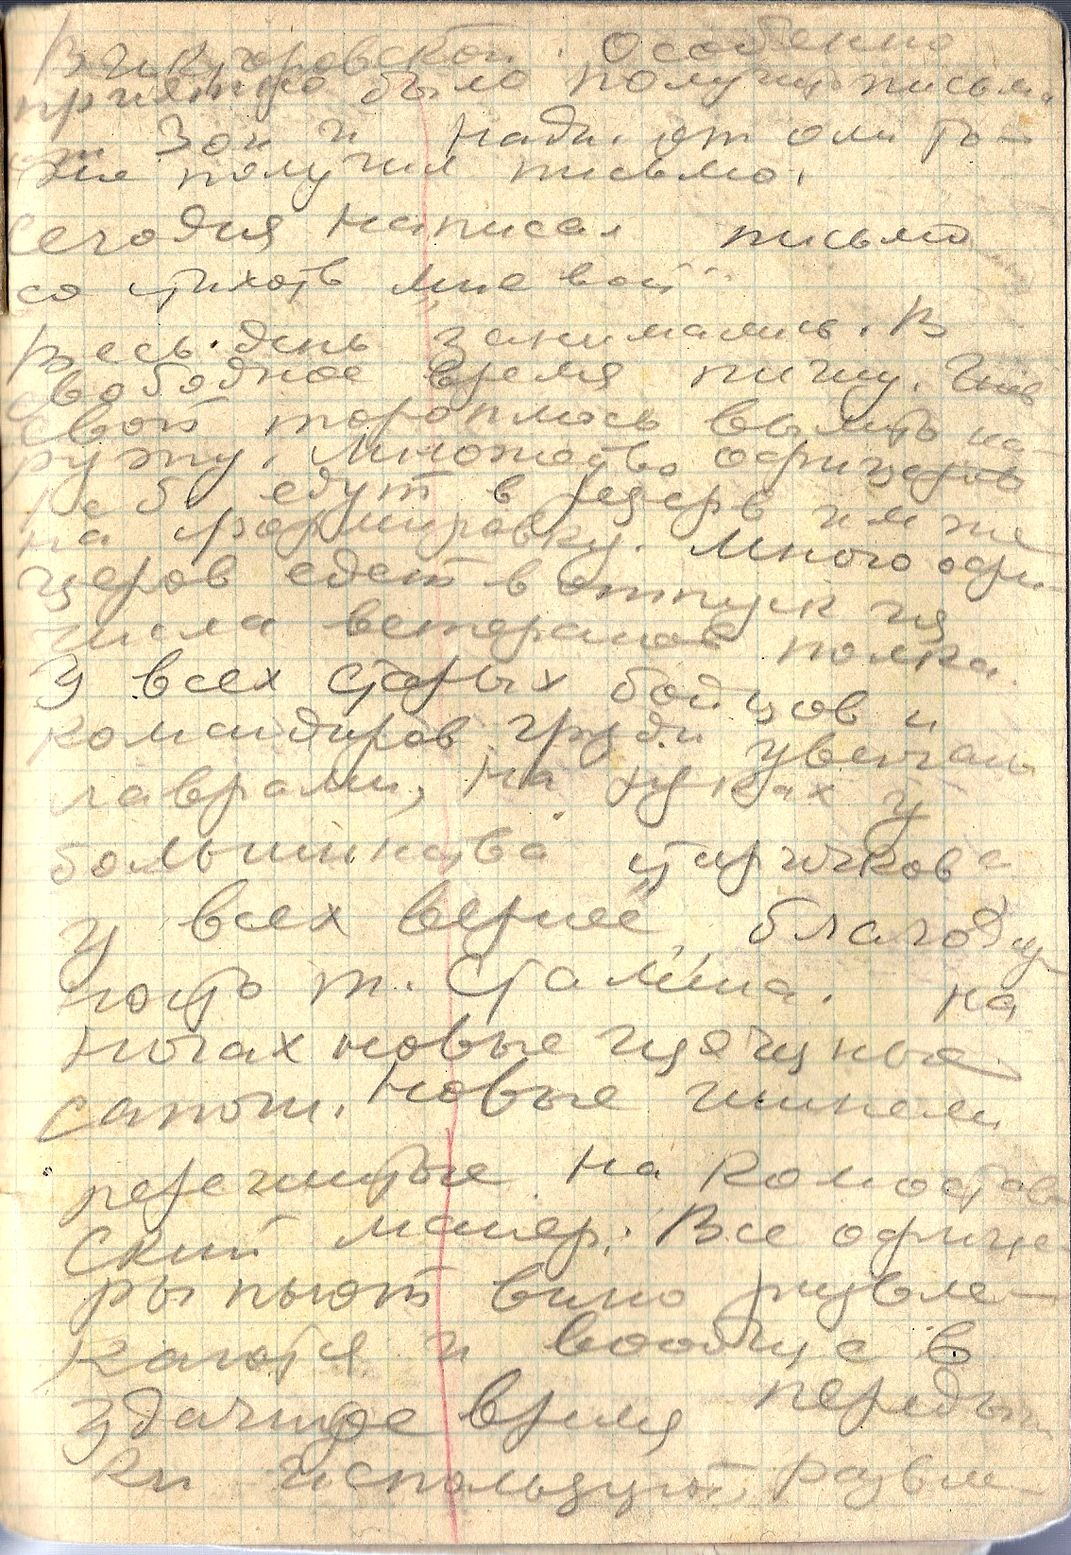 Особенно
приятно было получить письма
от Зои и Нади. от оли то-
же получил письмо.
Сегодня написал письмо
со стихотв
Весь день занимались. В
свободное время пишу. Гнев
свой тороплюсь вылить на-
ружу. Множество офицеров
едут в резерв или же
на формировку. Много офи-
церов едет в отпуск из
числа ветеранов полка.
У всех старых бойцов и
командиров груди увенчаны
лаврами, на руках у
большинства
у всех вернее, благодар
ность т. Сталина. на
ногах новые изящные
сапоги. Новые шинели
перешитые на комостав
ский манер. Все офице-
ры пьют вино развле-
каются и вообще в
удачное время передыш
ки используют развле-